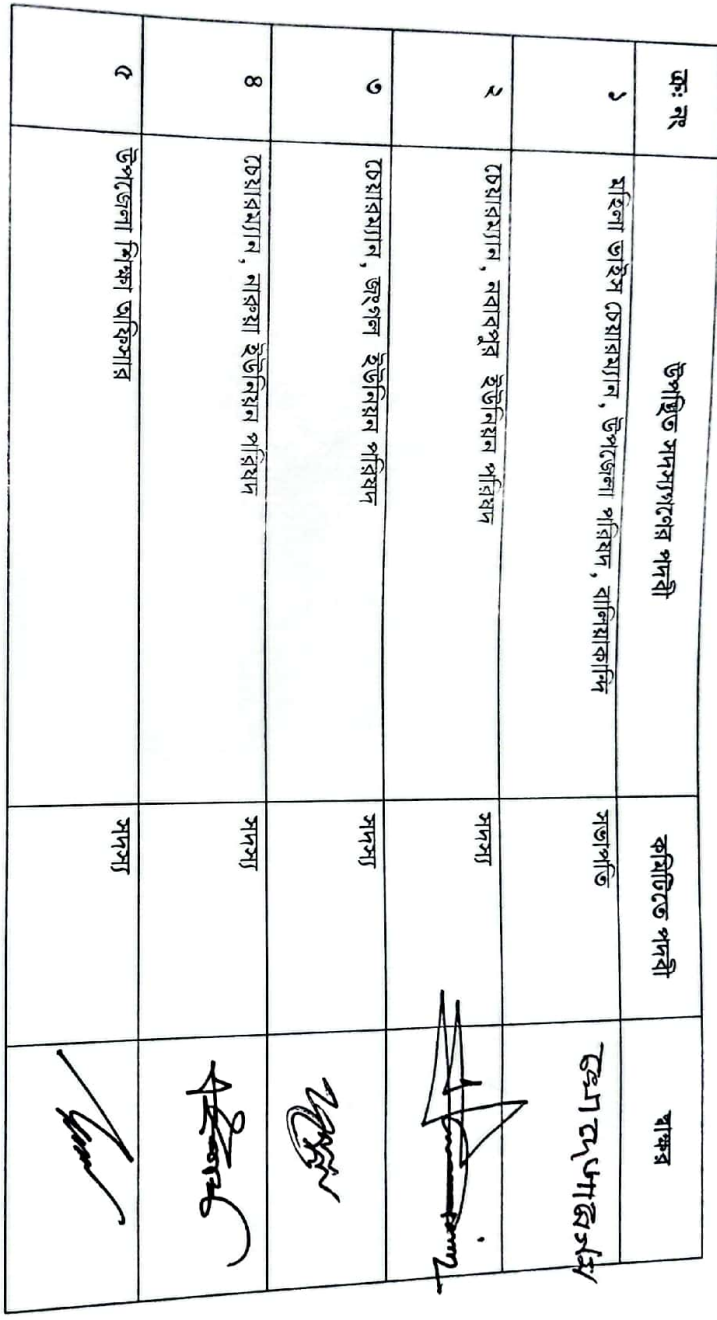 ক্র: নং উপস্থিত সদস্যগণের পদবী কমিটিতে পদবী স্বাক্ষর
১ মহিলা ভাইস চেয়ারম্যান, উপজেলা পরিষদ, বালিয়াকান্দি সভাপতি
২ চেয়ারম্যান, নবাবপুর ইউনিয়ন পরিষদ সদস্য
৩ চেয়ারম্যান, জংগল ইউনিয়ন পরিষদ সদস্য
৪ চেয়ারম্যান, নারুয়া ইউনিয়ন পরিষদ সদস্য
৫ উপজেলা শিক্ষা অফিসার সদস্য